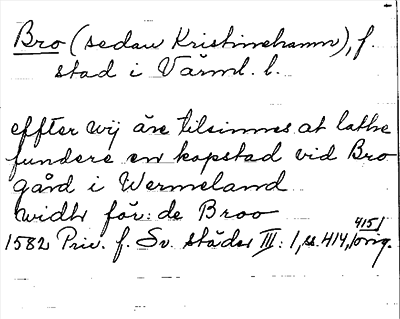 Bro (sedan Kristinehamn), f.
stad i Värml. l.
effter wij äre tilsinnes at lathe
fundere en kopstad vid Bro
gård i Wermeland
widh för: de Broo
1582 Priv. f. Sv. städer III: 1, s. 414, orig.
415